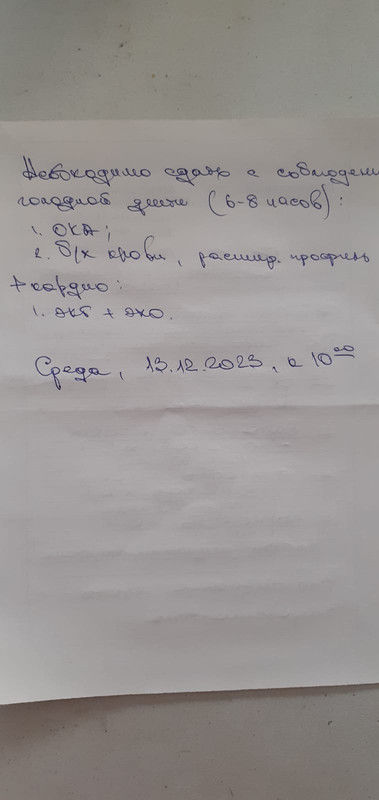 Необходимо сдать с соблюдени
голодной диеты (6-8 часов):
1. ОКА;
2. б/х крови, расшир. профиль
+ кардио:
1. ЭКГ + ЭХО.
Среда, 13.12.2023, к 10⁰⁰